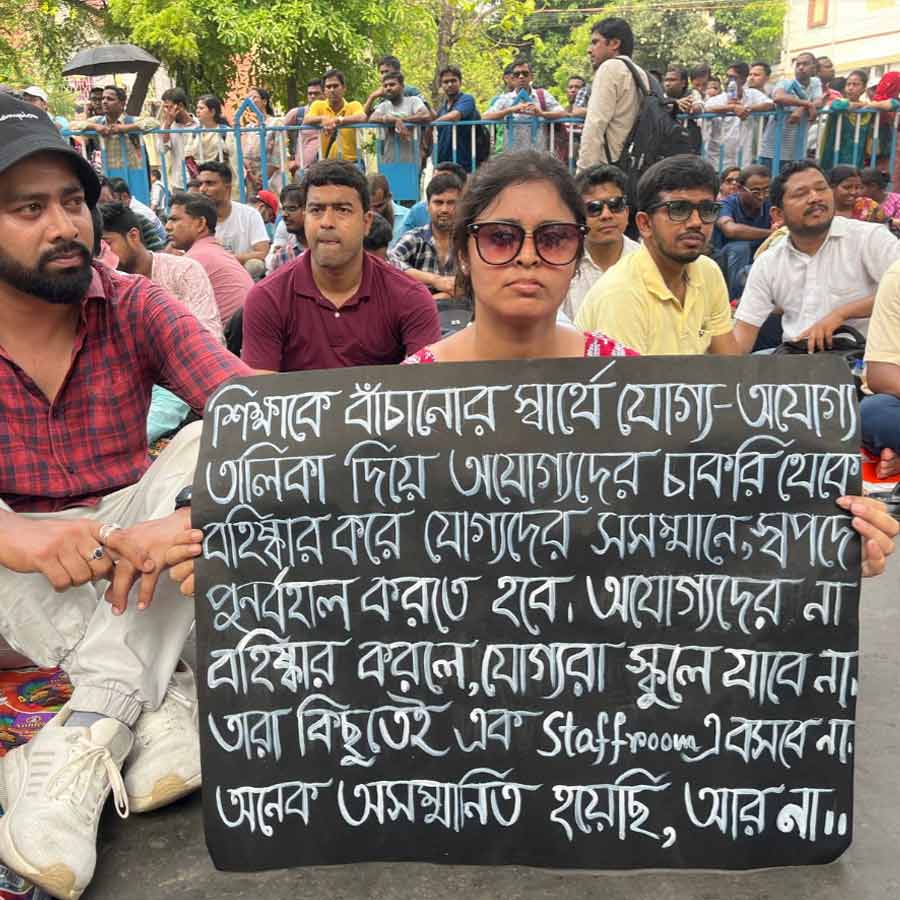 champion
শিক্ষাকে বাঁচানোর স্বার্থে যোগ্য-অযোগ্য
তালিকা দিয়ে অযোগ্যদের চাকরি থেকে
বহিষ্কার করে যোগ্যদের সসম্মানে, স্বপদে
পুনর্বহাল করতে হবে। অযোগ্যদের না
বহিষ্কার করলে, যোগ্যরা স্কুলে যাবে না।
তারা কিছুতেই এক Staffroom এ বসবে না।
অনেক অসম্মানিত হয়েছি, আর না..